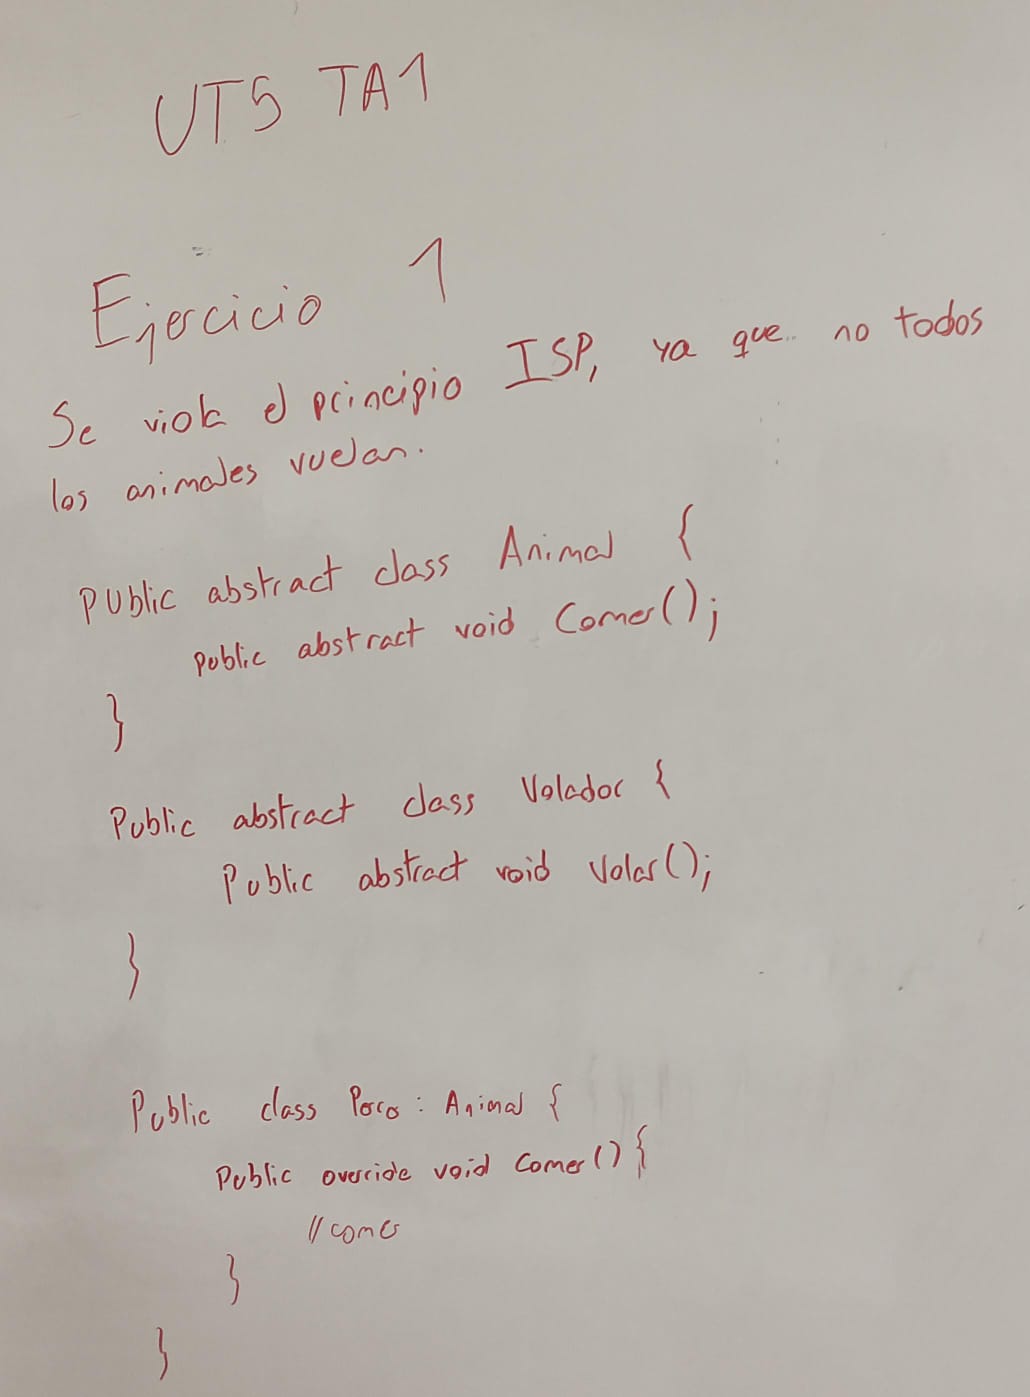 UT5 TA1
Ejercicio 1
Se viola el principio ISP, ya que no todos
los animales vuelan.
Public abstract class Animal {
public abstract void Comer();
}
Public abstract class Volador {
Public abstract void Volar();
}
Public class Perro : Animal {
Public override void Comer() {
//comer
}
}